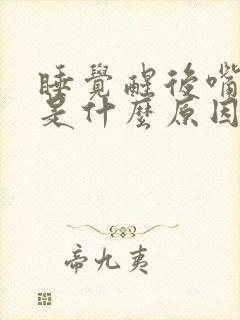 睡覺醒後嘴
是什麼原因
帝九夷